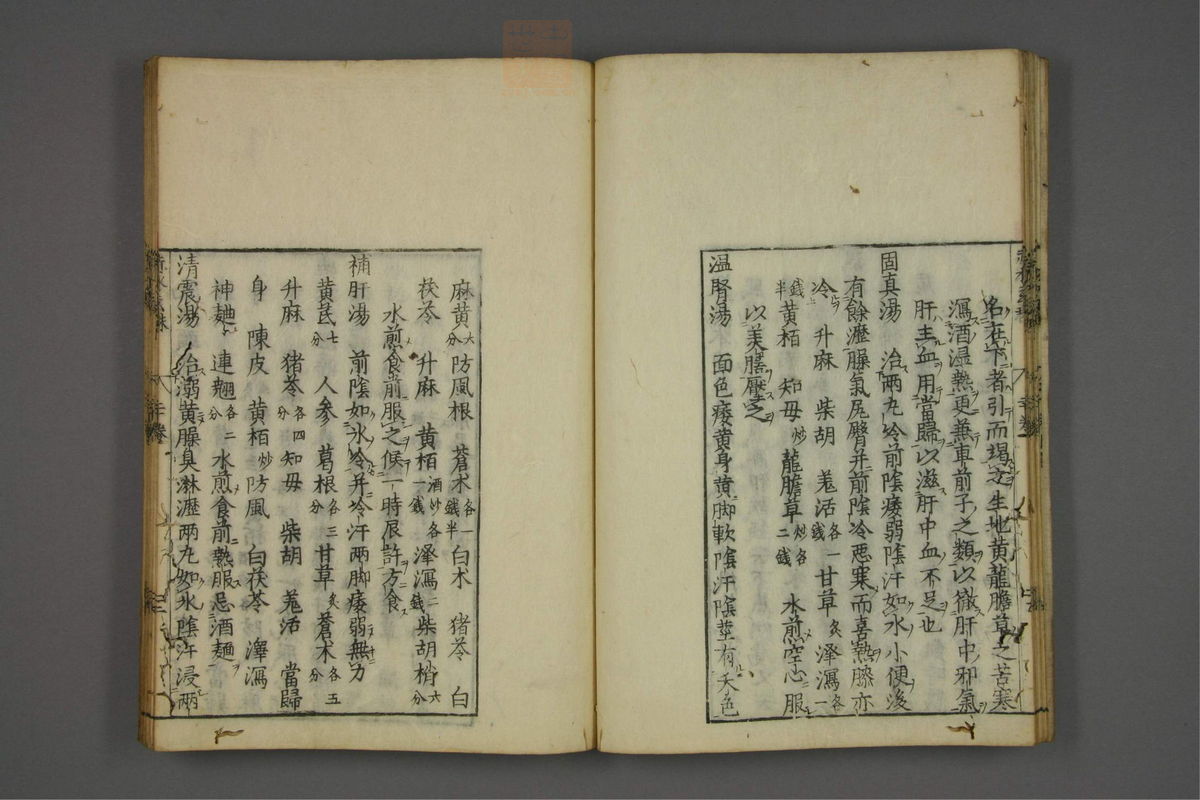 名在下者引而竭之生地黄龍膽草之苦寒
瀉酒湿熱更兼車前子之類以徹肝中邪氣
肝主血用當歸以滋肝中血不足也
固真湯 治兩丸冷前陰痿弱陰汗如水小便後
有餘瀝臊氣尻臀并前陰冷惡寒而喜熱膝亦
冷 升麻 柴胡 羗活各一錢 甘草炙 澤瀉各一
錢半 黄栢 知母炒 龍膽草炒各二錢 水煎空心服
以美膳壓之
温腎湯 面色痿黄身黄脚軟陰汗陰莖有夭色
麻黄六分 防風根 蒼朮各一錢半 白朮 猪苓 白
茯苓 升麻 黄栢酒炒各一錢 澤瀉二錢 柴胡梢六分
水煎食前服之候一時辰許方食
補肝湯 前陰如冰冷并冷汗兩脚痿弱無力
黄芪七分 人參 葛根各三分 甘草炙 蒼朮各五分
升麻 猪苓各四分 知母 柴胡 羗活 當歸
身 陳皮 黄栢炒 防風 白茯苓 澤瀉
神麯 連翹各二分 水煎食前熱服忌酒麺
清震湯 治溺黄臊臭淋瀝兩丸如冰陰汗浸兩